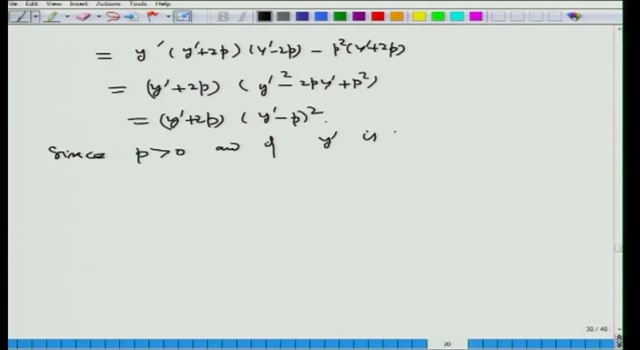 Edit View Insert Actions Tools Help
= y'(y'+2p)(y'-2p) - p²(y'+2p)
= (y'+2p) (y'² - 2py' + p²)
= (y'+2p) (y'-p)².
Since p>0 and if y' is
30 / 40
30